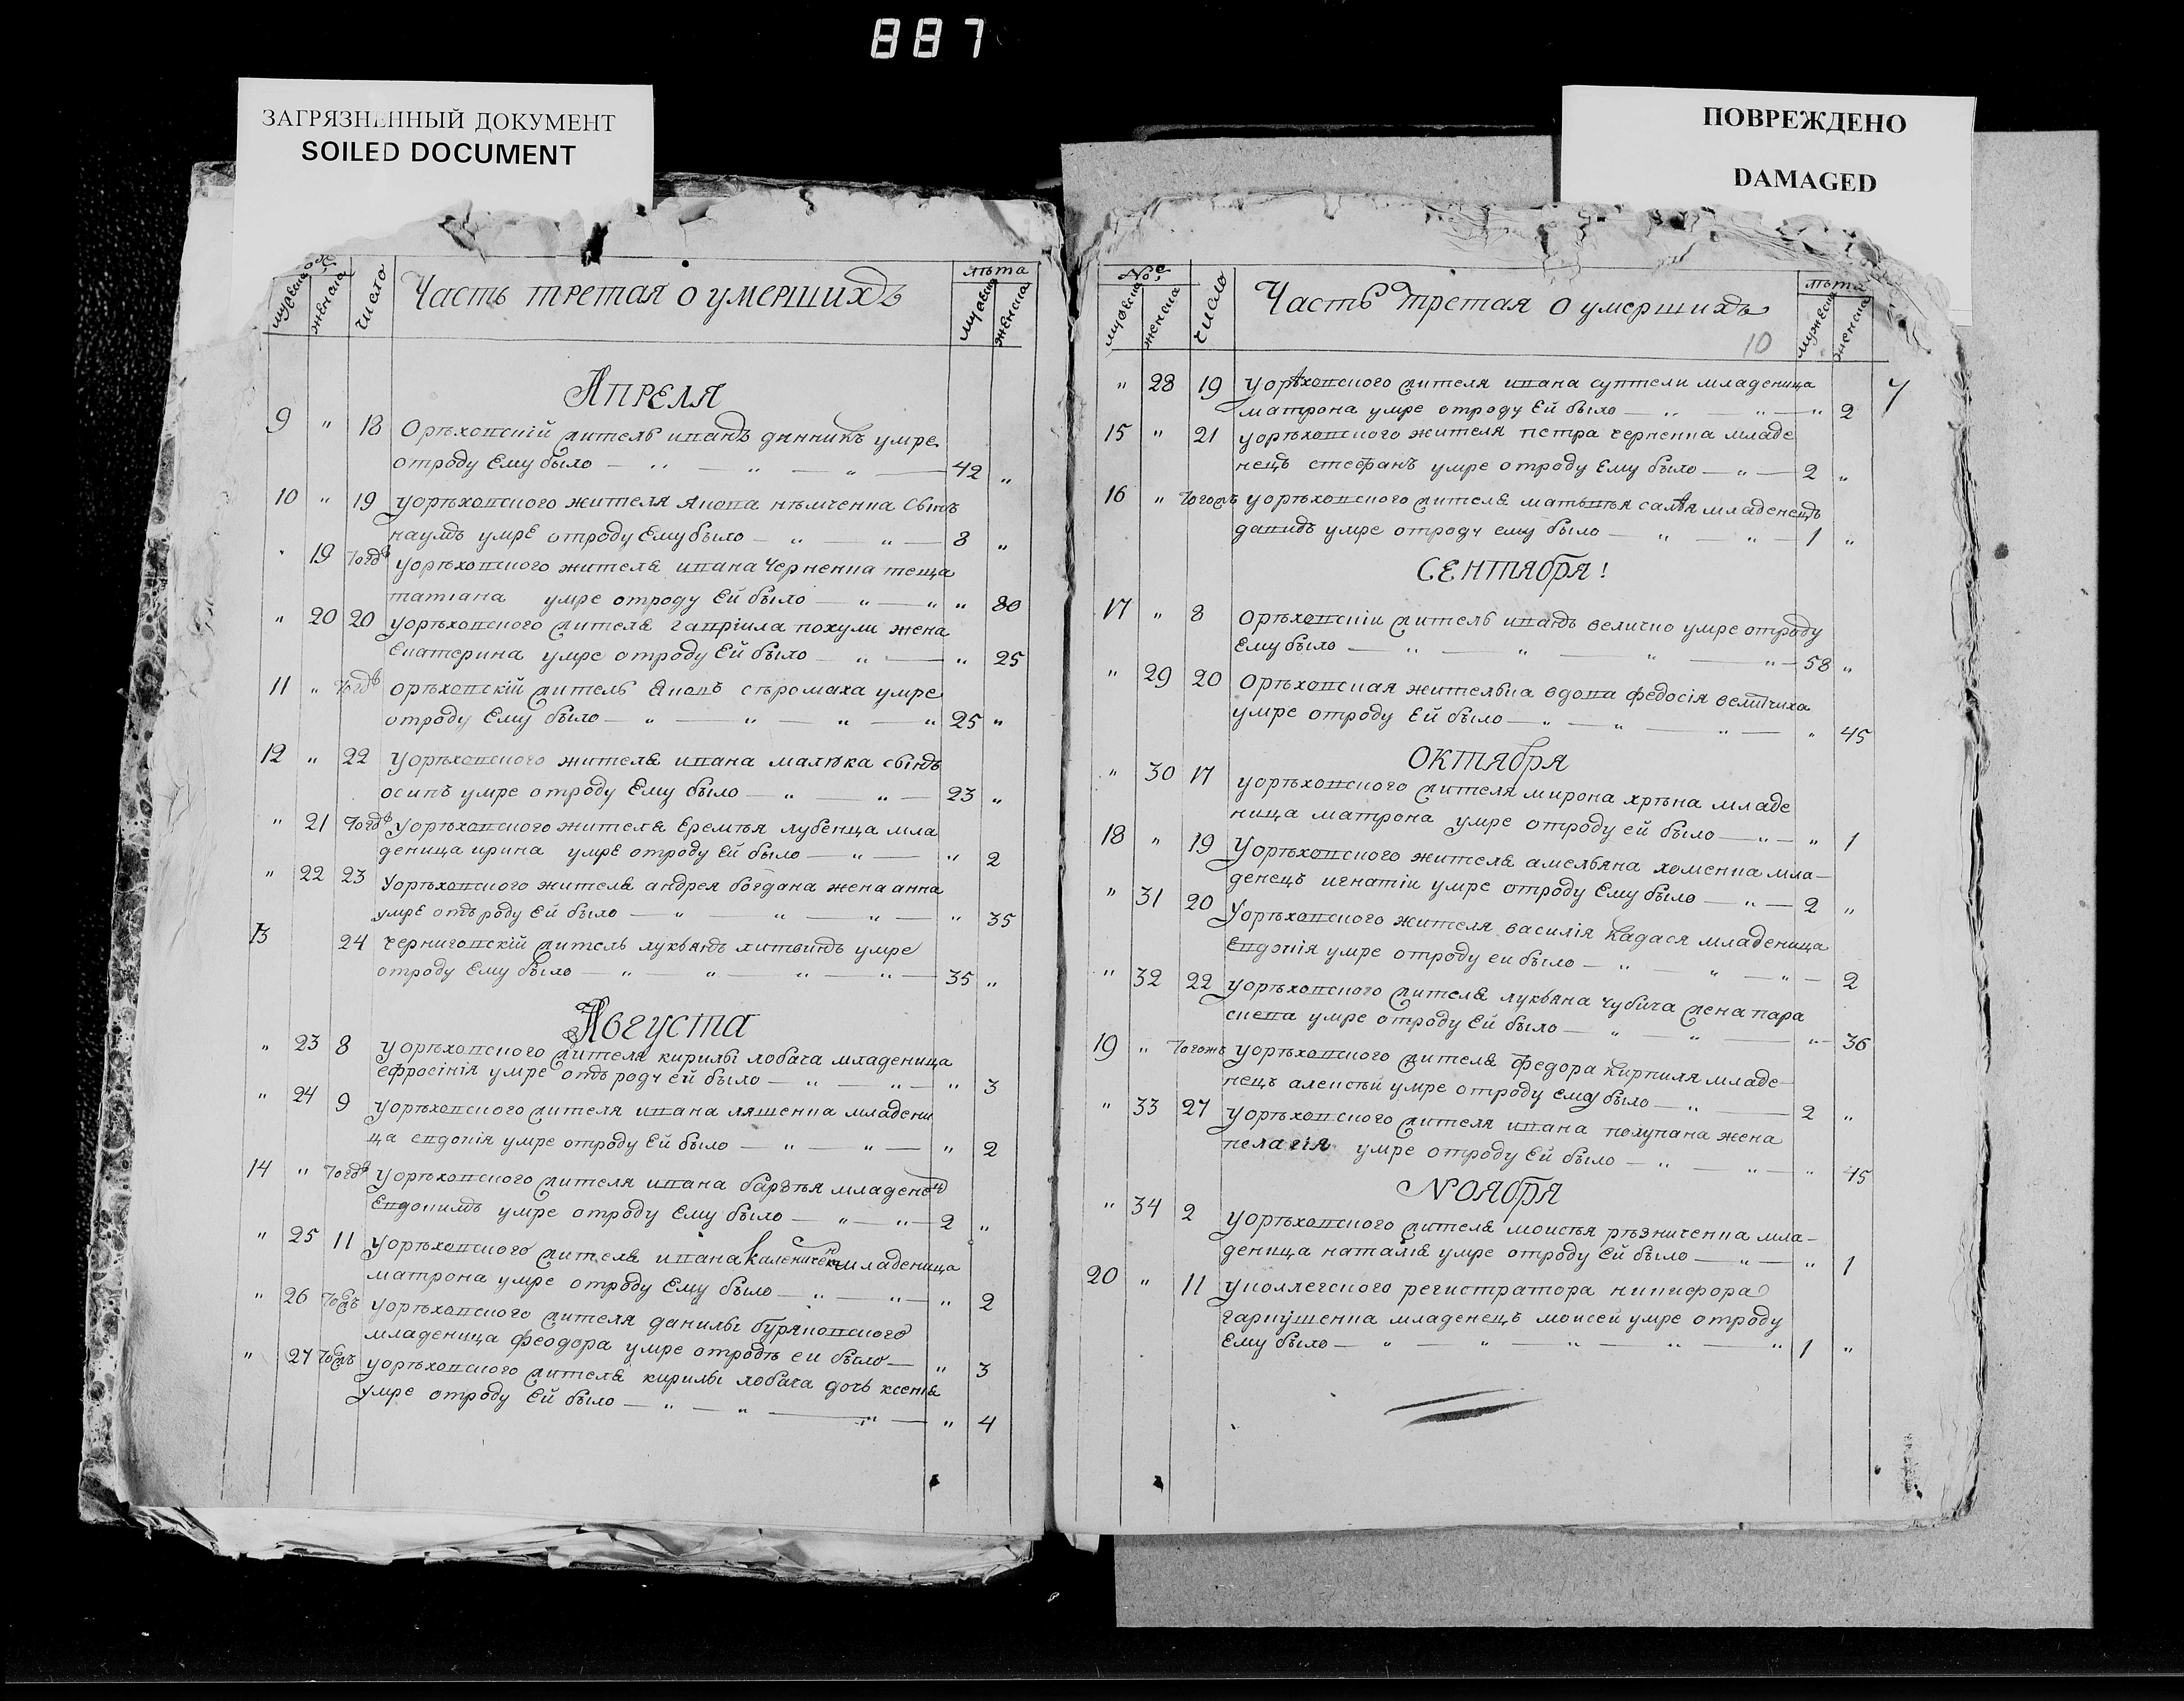 887
ЗАГРЯЗНЕННЫЙ ДОКУМЕНТ
SOILED DOCUMENT
ПОВРЕЖДЕНО
DAMAGED
число
Часть третая о умершихъ
лѣта
женска
Апреля
9 " 18 Орѣховскій житель иванъ умре
отроду Ему было — " — " — " — 42 "
10 " 19 уорѣховского жителя Якова нѣмченка сынъ
наумъ умре отроду Ему было — " — " — 8 "
" 19 тогожъ уорѣховского жителя ивана Черненка теща
татіана умре отроду Ей было — " — " " 80
" 20 20 уорѣховского жителя гавріила похули жена
Екатерина умре отроду Ей было — " — " 25
11 " тогожъ орѣховскій житель Яковъ сѣромаха умре
отроду Ему было — " — " — " — " 25 "
12 " 22 уорѣховского жителя ивана малюка сынъ
осипъ умре отроду Ему было — " " — 23 "
" 21 тогожъ уорѣховского жителя Еремѣя лубенца мла
деница ирина умре отроду Ей было — " — " 2
" 22 23 уорѣховского жителя андрея богдана жена анна
умре отъ роду Ей было — " — " — " — " 35
13 24 черниговскій житель лукьянъ литвинъ умре
отроду Ему было — " — " — " — " — 35 "
Августа
" 23 8 уорѣховского жителя кирилы лобача младеница
ефросінія умре отъ роду ей было — " — " — " 3
" 24 9 уорѣховского жителя ивана ляшенка младени
ца евдокія умре отроду Ей было — " — " — " 2
14 " тогожъ уорѣховского жителя ивана младенец
Евдокимъ умре отроду Ему было — " — " — 2 "
" 25 11 уорѣховского жителя ивана Каленичен младеница
матрона умре отроду Ему было — " — " — " 2
" 26 тогожъ уорѣховского жителя данилы буряковского
младеница феодора умре отродѣ еи было — " 3
" 27 тогожъ уорѣховского жителя кирилы лобача дочь ксенія
умре отроду Ей было — " — " — " — " 4
число
Часть третая о умершихъ
лѣта
женска
10
" 28 19 уорѣховского жителя ивана суптели младеница 7
матрона умре отроду Ей было — " " — " 2
15 " 21 уорѣховского жителя петра черненка младе
нецъ стефанъ умре отроду Ему было — " — 2 "
16 " тогожъ уорѣховского жителя матвѣя младенецъ
давидъ умре отроду ему было — " — " — 1 "
СЕНТЯбря!
17 " 8 Орѣховскіи житель иванъ величко умре отроду
Ему было — " — " — " — " — 58 "
" 29 20 Орѣховская жителька вдова федосія величиха
умре отроду Ей было — " — " " — " 45
ОКТЯбря
" 30 17 уорѣховского жителя мирона хрѣна младе
ница матрона умре отроду ей было — " — " 1
18 " 19 уорѣховского жителя амельяна хоменка мла-
денецъ игнатіи умре отроду Ему было — " — 2 "
" 31 20 уорѣховского жителя василія Кадася младеница
Евдокія умре отроду еи было — " " — " — 2
" 32 22 уорѣховского жителя лукьяна чубича жена пара
скева умре отроду Ей было — " " — " — 36
19 " тогожъ уорѣховского жителя федора Кирпиля младе-
нецъ алексѣй умре отроду ему было — " — 2 "
" 33 27 уорѣховского жителя ивана полупана жена
пелагія умре отроду Ей было — " — " — " 45
НОЯбря
" 34 2 уорѣховского жителя моисѣя рѣзниченка мла-
деница наталія умре отроду Ей было — " — " 1
20 " 11 уколлегского регистратора никифора
гаркушенка младенецъ моисей умре отроду
Ему было — " — " — " — " — " 1 "